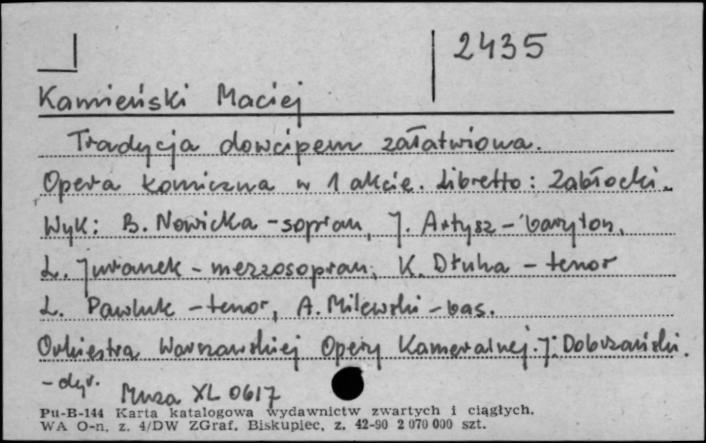 2435
Kamieński Maciej
Tradycja dowcipem załatwiona.
Opera komiczna w 1 akcie. Libretto: Zabłocki.
Wyk: B. Nowicka - sopran, J. Artysz - baryton,
Ł. Juranek - mezzosopran, K. Dłuha - tenor
L. Pawluk - tenor, A. Milewski - bas.
Orkiestra Warszawskiej Opery Kameralnej. J. Dobrzański.
- dyr. Muza XL 0617
Pu-B-144 Karta katalogowa wydawnictw zwartych i ciągłych.
WA O-n. z. 4/DW ZGraf. Biskupiec, z. 42-90 2 070 000 szt.